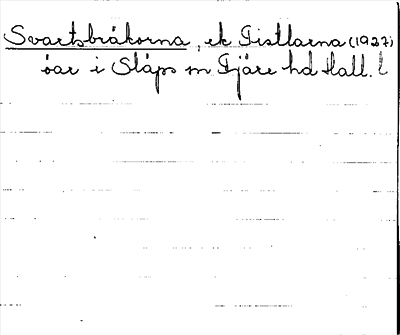 Svartsbråkorna, ek Tistlarna (1927)
öar i Släps sn Fjäre hd Hall. l